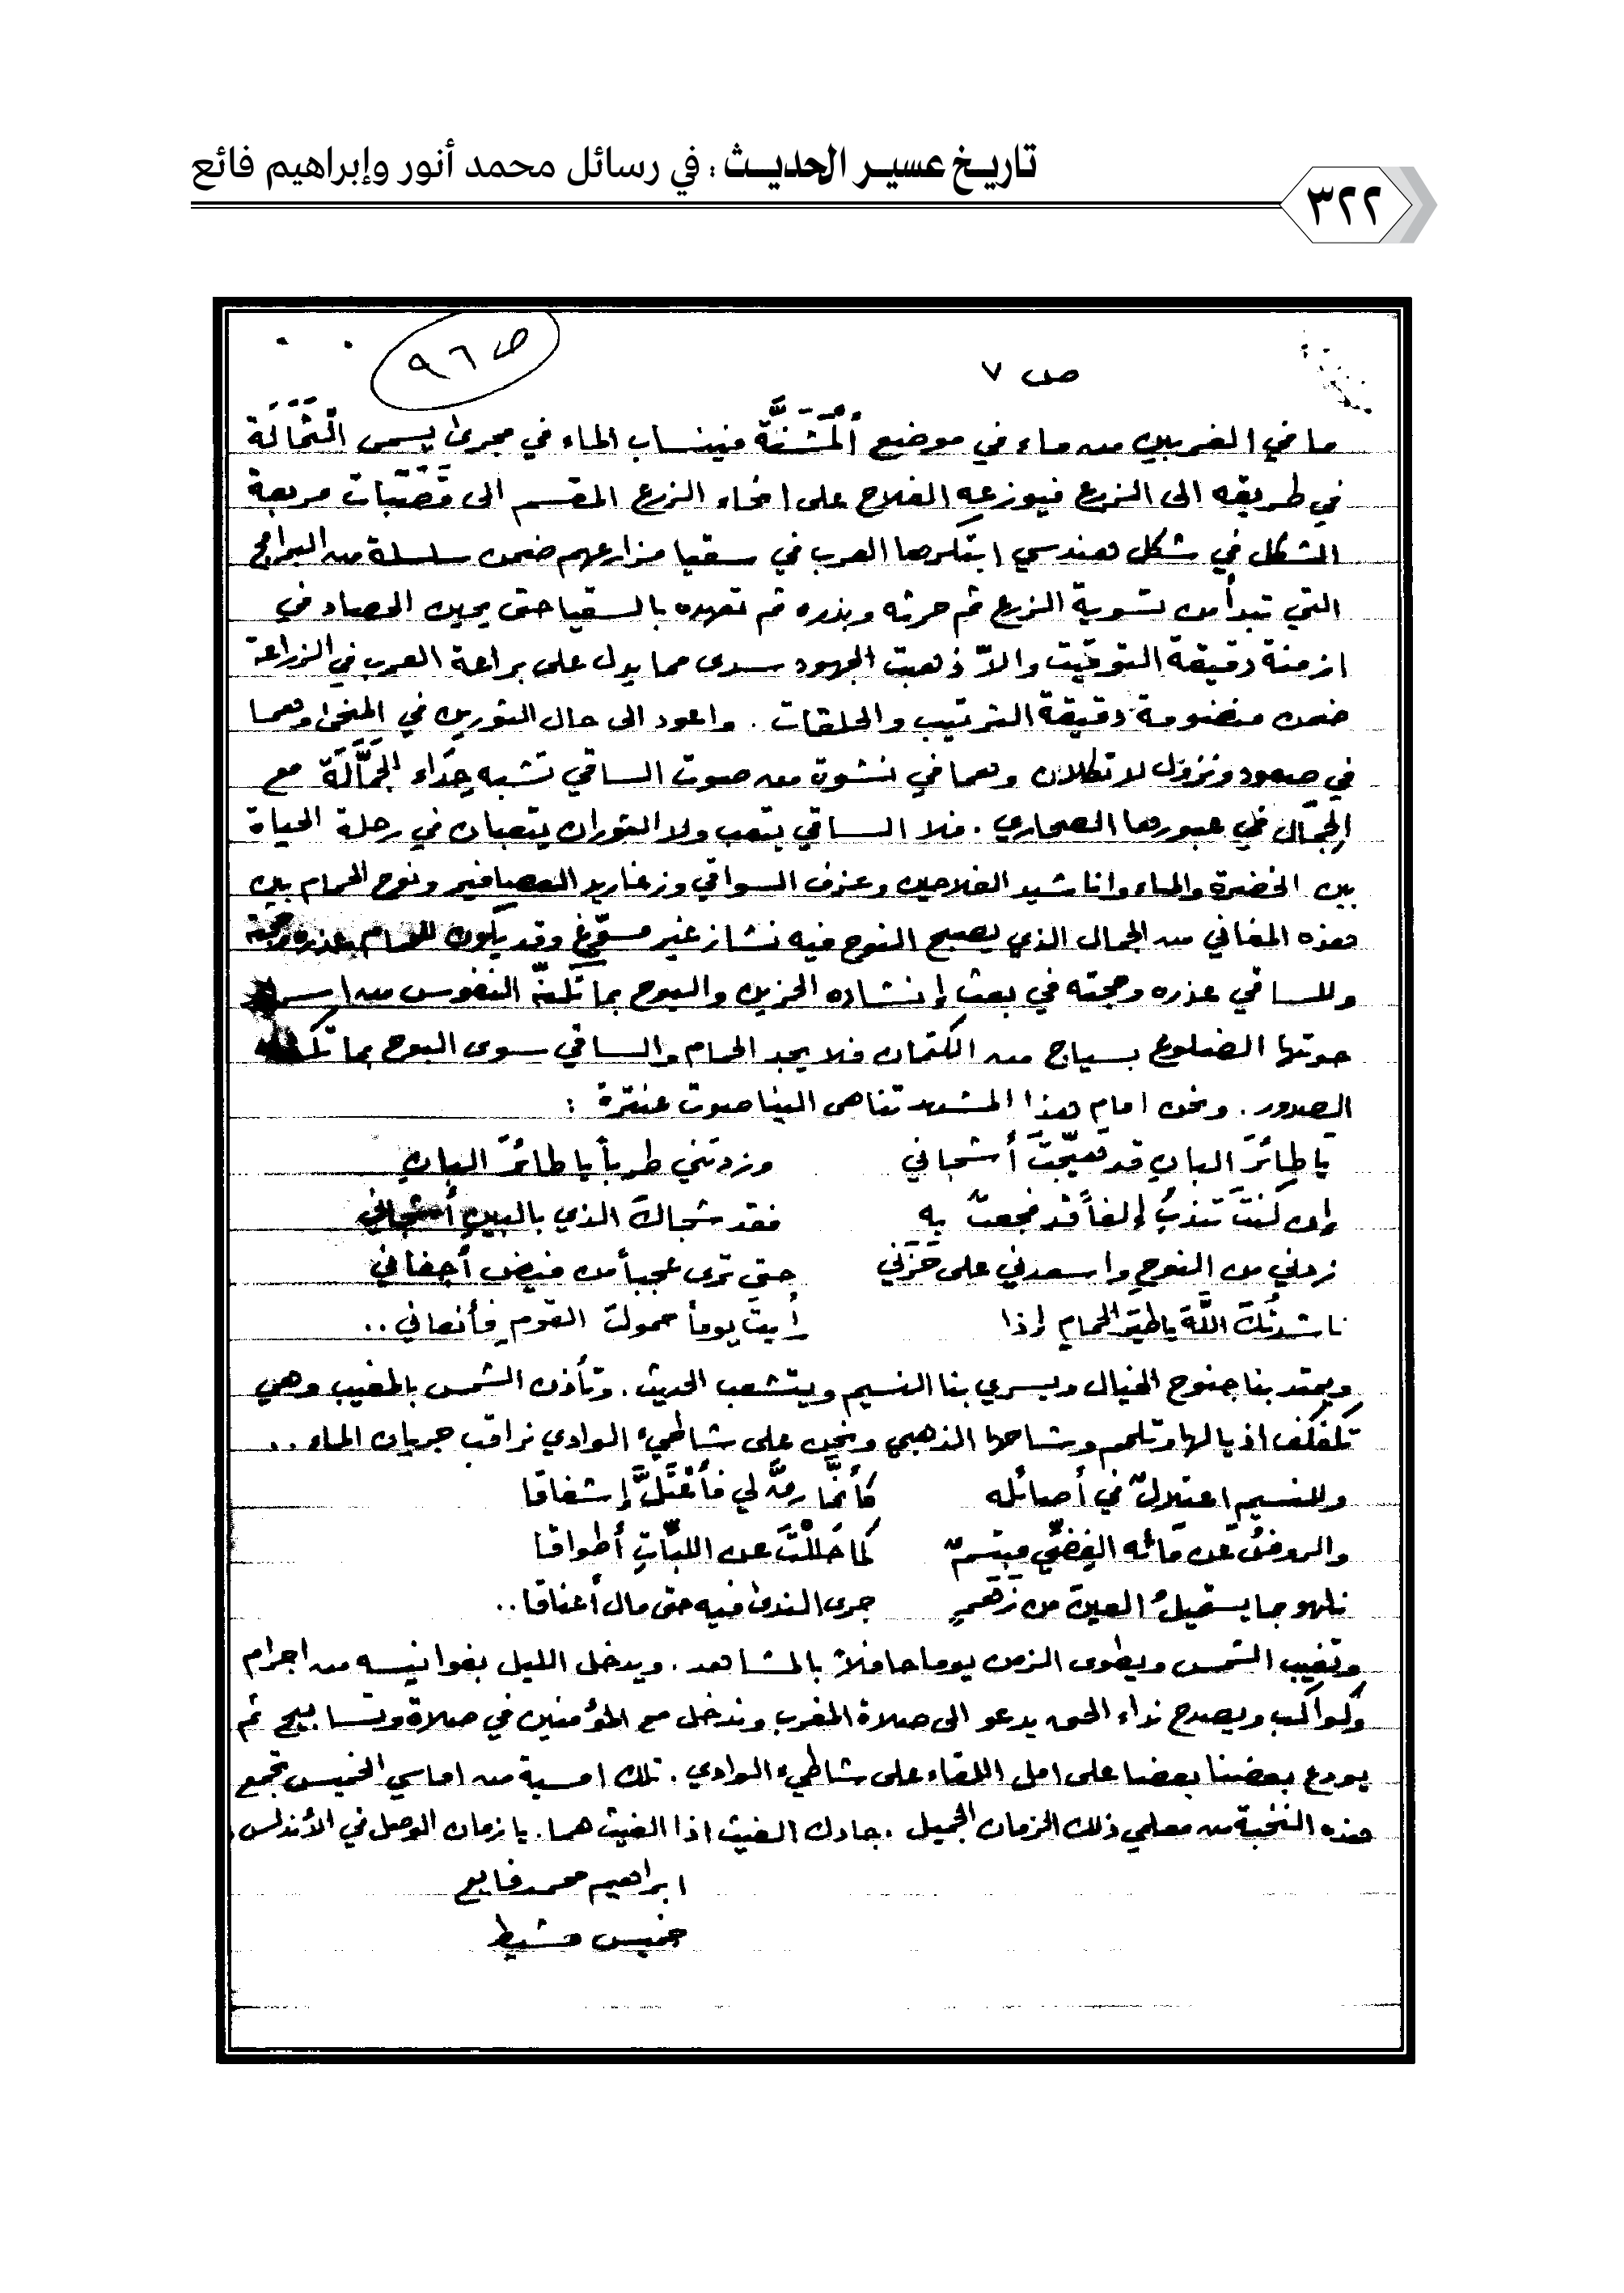 تاريخ عسير الحديث : في رسائل محمد أنور وإبراهيم فائع
٣٢٢
ص ٩٦
ص ٧
ما في الغربين من ماء في موضع اَلْمَشَنَّة فينساب الماء في مجرىً يسمى الْثَمَّالَة
في طريقه الى الزرع فيوزعه الفلاح على انحاء الزرع المقسم الى قَصَبَات مربعة
الشكل في شكل هندسي ابتكرها العرب في سقيا مزارعهم ضمن سلسلة من البرامج
التي تبدأ من تسوية الزرع ثم حرثه وبذره ثم تعهده بالسقيا حتى يحين الحصاد في
ازمنة دقيقة التوقيت والاّ ذهبت الجهود سدى مما يدل على براعة العرب في الزراعة
ضمن منضومة دقيقة الترتيب والحلقات . واعود الى حال الثورين في المنحىٰ وهما
في صعود ونزول لا تكلان وهما في نشوة مع صوت الساقي تشبه حِدَاء الجَمَّالَة مع
الجِمَال في عبورها الصحاري . فلا الساقي يتعب ولا الثوران يتعبان في رحلة الحياة
بين الخضرة والماء واناشيد الفلاحين وعزف السواقي وزغاريد العصافير ونوح الحمام بين
هذه المغاني من الجمال الذي يصبح النوح فيه نشاز غير مسوّغ وقد يكون للحمام عذره وحجته
وللساقي عذره وحجته في بعث إنشاده الحزين والبوح بما تكنّه النفوس من اسرار
حوتها الضلوع بسياج من الكتمان فلا يجد الحمام والساقي سوى البوح بما
الصدور . ونحن امام هذا المشهد تناهى الينا صوت عنترة :
يا طائرَ البانِ قد هيّجتَ أشجاني وزدتني طرباً يا طائرَ البانِ
إن كنتَ تندبُ إلفاً قد فجعتَ به فقد شجاك الذي بالبينِ أشجاني
زدني من النوحِ واسعدني على حَزَني حتى ترى عجباً من فيض أجفاني
ناشدتُكَ اللَّهَ يا طيَر الحمامِ إذا رأيتَ يوماً حمولَ القومِ فأنعاني ..
ويمتد بنا جنوح الخيال ويسري بنا النسيم ويتشعب الحديث . وتأذن الشمس بالمغيب وهي
تكفكف اذيالها وتلمم وشاحها الذهبي ونحن على شاطيء الوادي نراقب جريان الماء ..
وللنسيمِ اعتِلالٌ في أصائله كأنَّما رقَّ لي فأعْتَلَّ إشفاقا
والروضُ عن مَائه الفِضيِّ مبتسمٌ كما حَلَلْتَ عن اللبّاتِ أطواقا
نلهو بما يستميلُ العينَ من زَهَرٍ جرى الندىٰ فيه حتى مال أعناقا ..
وتغيب الشمس ويطوى الزمن يوما حافلاً بالمشاهد . ويدخل الليل بفوانيسه من اجرام
وكواكب ويصدح نداء الحق يدعو الى صلاة المغرب وندخل مع المؤمنين في صلاة وتسابيح ثم
يودع بعضنا بعضا على امل اللقاء على شاطيء الوادي . تلك امسية من اماسي الخميس تجمع
هذه النخبة من معلمي ذلك الزمان الجميل . جادك الغيث اذا الغيث هما . يا زمان الوصل في الأندلس .
ابراهيم محمد فايع
خميس مشيط